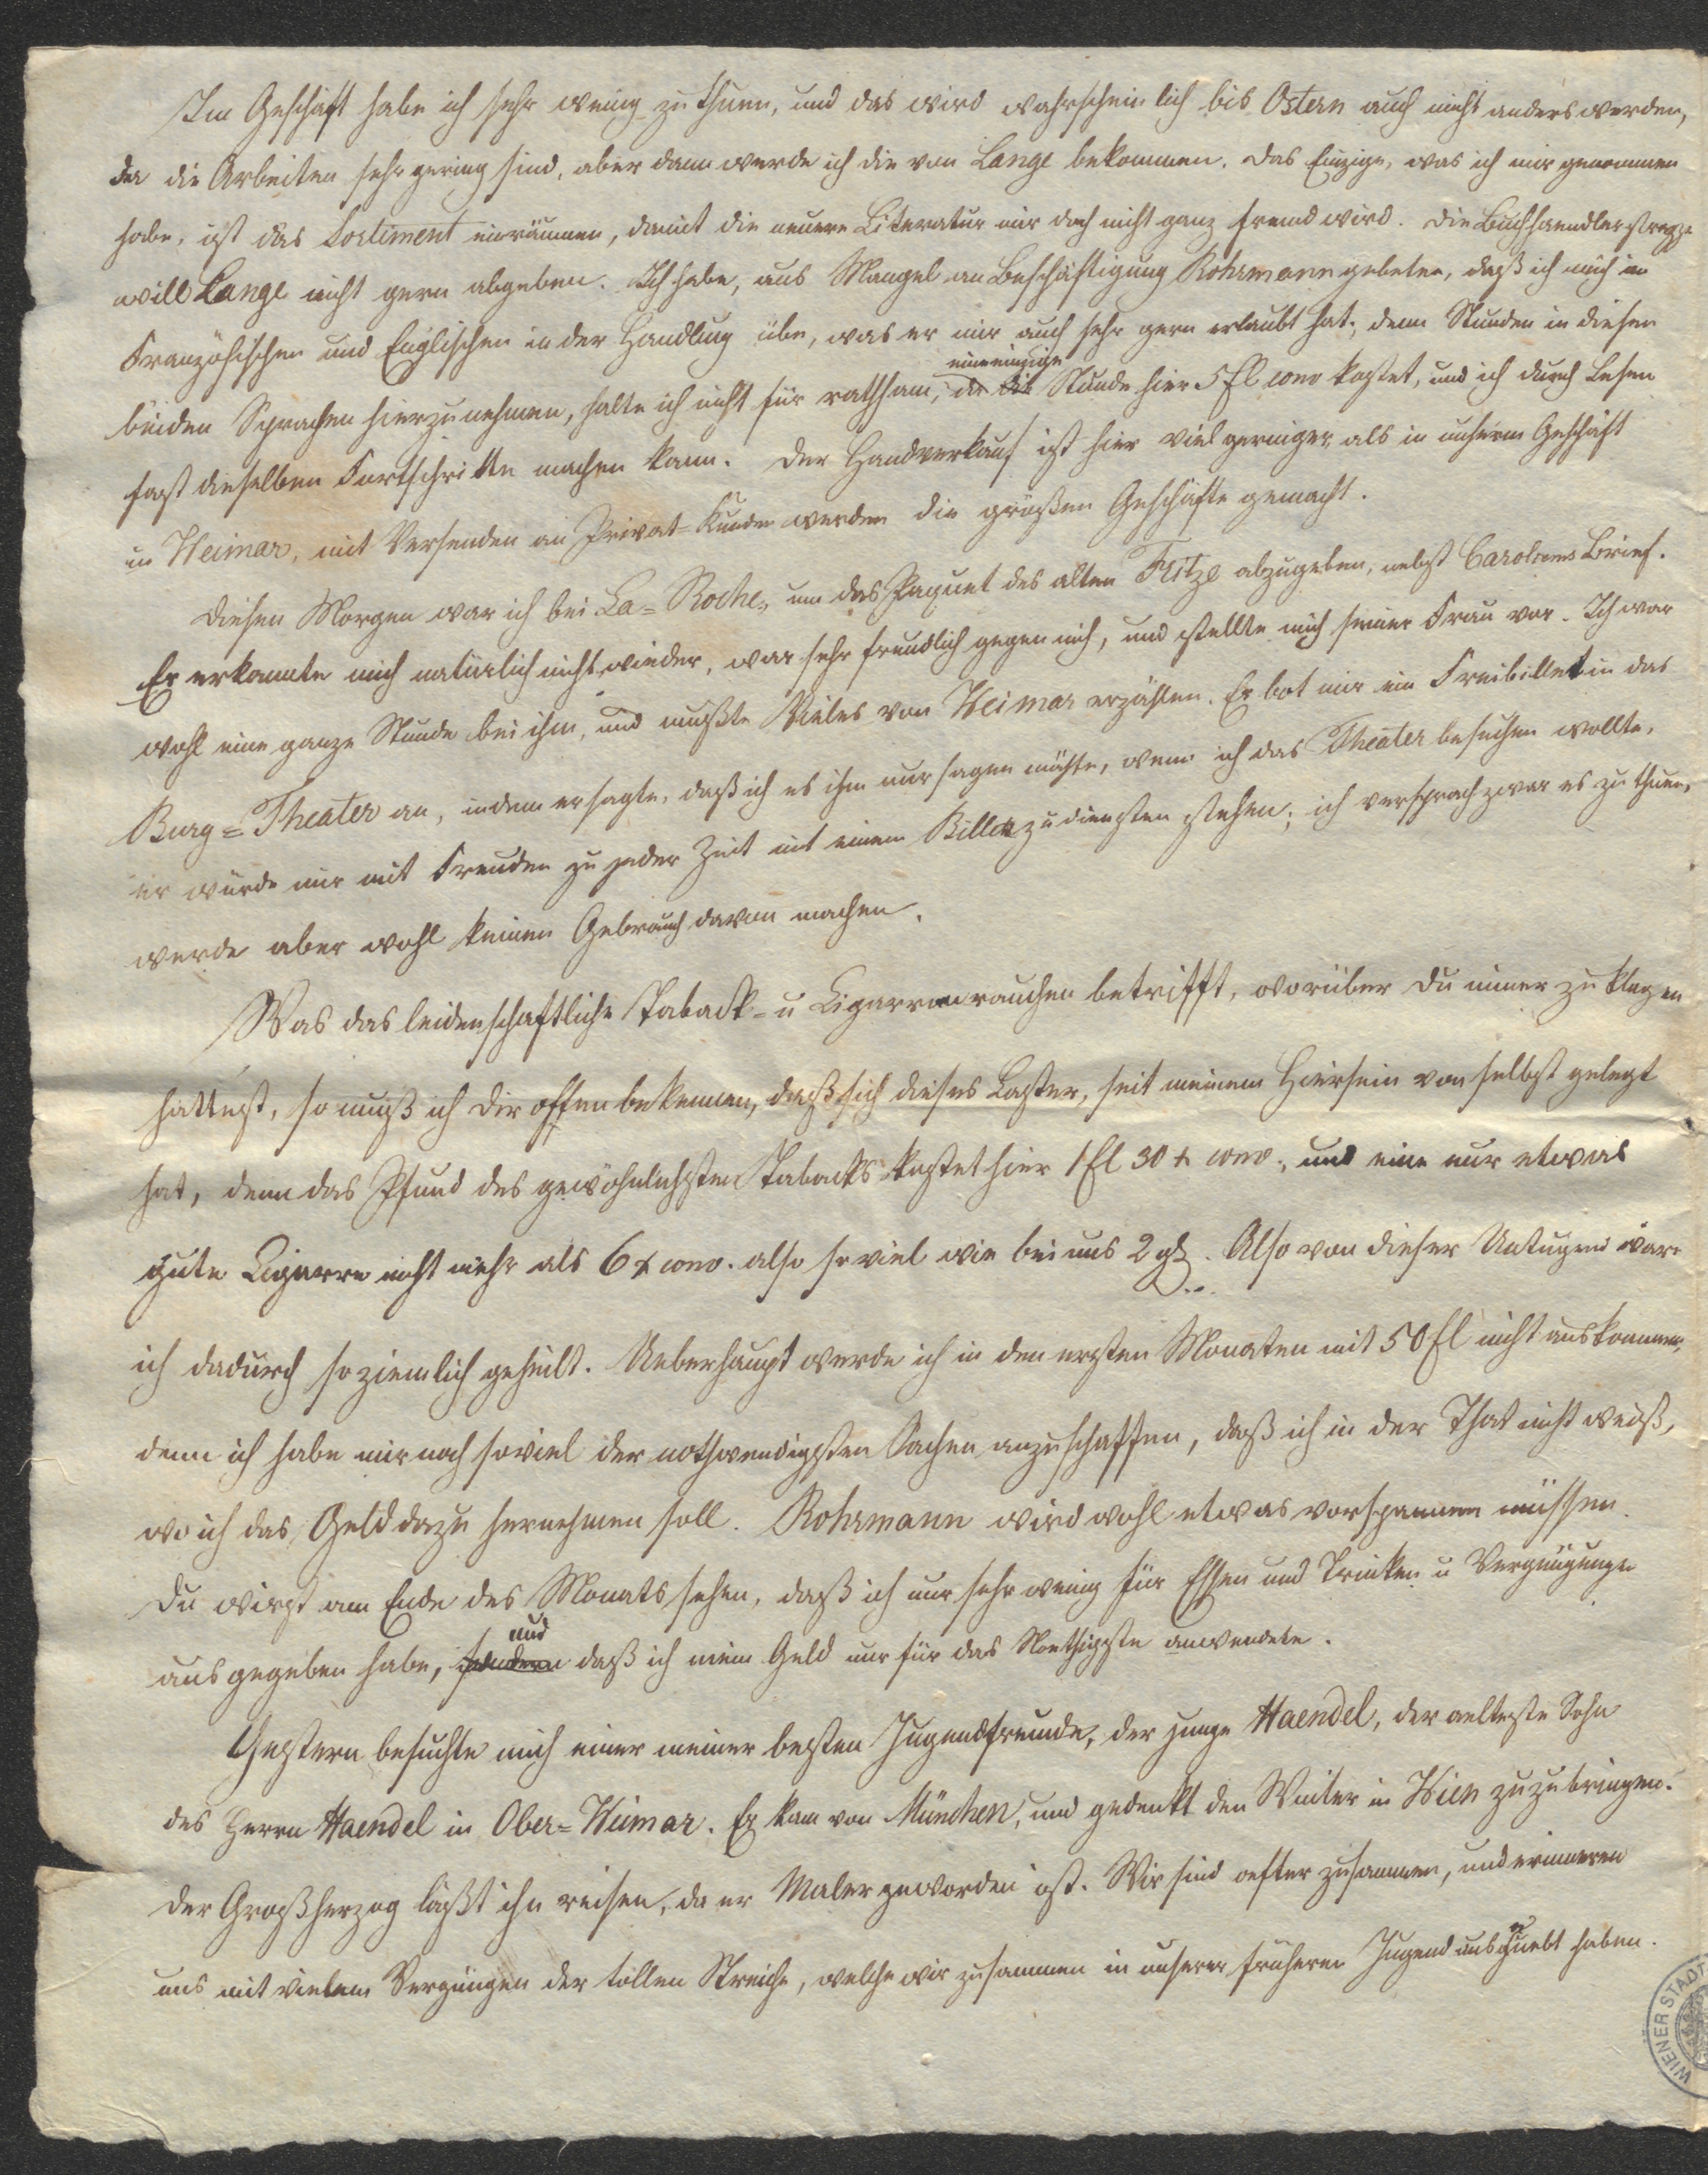 Im Geschäft habe ich sehr wenig zu thuen, und das wird wahrscheinlich bis Ostern auch nicht anders werden,
da die Arbeiten sehr gering sind, aber dann werde ich die von Lange bekommen. Das Einzige, was ich mir genommen
habe, ist das Sortiment einräumen, damit die neuere Literatur mir doch nicht ganz fremd wird. Die Buchhaendlerstrazze
will Lange nicht gern abgeben. Ich habe, aus Mangel an Beschäftigung Rohrmann gebeten, daß ich mich im
Französischen und Englischen in der Handlung übe, was er mir auch sehr gern erlaubt hat; denn Stunden in diesen
beiden Sprachen hierzunehmen, halte ich nicht für rathsam, da die eine einzige Stunde hier 5 fl conv kostet, und ich durch Lesen
fast dieselben Fortschritte machen kann. Der Handverkauf ist hier viel geringer, als in unserm Geschäft
in Weimar, mit Versenden an Privat-Kunden werden die größten Geschäfte gemacht.
Diesen Morgen war ich bei La-Roche, um das Paquet des alten Fritze abzugeben, nebst Carolinens Brief.
Er erkannte mich natürlich nicht wieder, war sehr freundlich gegen mich, und stellte mich seiner Frau vor. Ich war
wohl eine ganze Stunde bei ihm, und mußte Vieles von Weimar erzählen. Er bot mir ein Freibillet in das
Burg-Theater an, indem er sagte, daß ich es ihm nur sagen möchte, wenn ich das Theater besuchen wollte,
er würde mir mit Freuden zu jeder Zeit mit einem Billet zu diensten stehen; ich versprach zwar es zu thuen,
werde aber wohl keinen Gebrauch davon machen.
Was das leidenschaftliche Taback- u Cigarrenrauchen betrifft, worüber Du immer zu klagen
hattest, so muß ich Dir offen bekennen, daß sich dieses Laster, seit meinem Hiersein von selbst gelegt
hat, denn das Pfund des gewöhnlichsten Tabacks kostet hier 1 fl 30 x conv., und eine nur etwas
gute Cigarre nicht mehr als 6 x conv. also so viel wie bei uns 2 gr. Also von dieser Untugend wäre
ich dadurch so ziemlich geheilt. Ueberhaupt werde ich in den ersten Monaten mit 50 fl nicht auskommen,
denn ich habe mir noch soviel der nothwendigsten Sachen anzuschaffen, daß ich in der That nicht weiß,
wo ich das Geld dazu hernehmen soll. Rohrmann wird wohl etwas vorspannen müssen.
Du wirst am Ende des Monats sehen, daß ich nur sehr wenig für Essen und Trinken u Vergnügungen
ausgegeben habe, sondern und daß ich mein Geld nur für das Noethigste anwendete.
Gestern besuchte mich einer meiner besten Jugendfreunde, der junge Haendel, der aelteste Sohn
des Herrn Haendel in Ober-Weimar. Er kam von München, und gedenkt den Winter in Wien zuzubringen.
Der Großherzog läßt ihn reisen, da er Maler geworden ist. Wir sind oefter zusammen, und erinneren
uns mit vielem Vergnügen der tollen Streiche, welche wir zusammen in unserer früheren Jugend ausgeuebt haben.
WIENER STADT